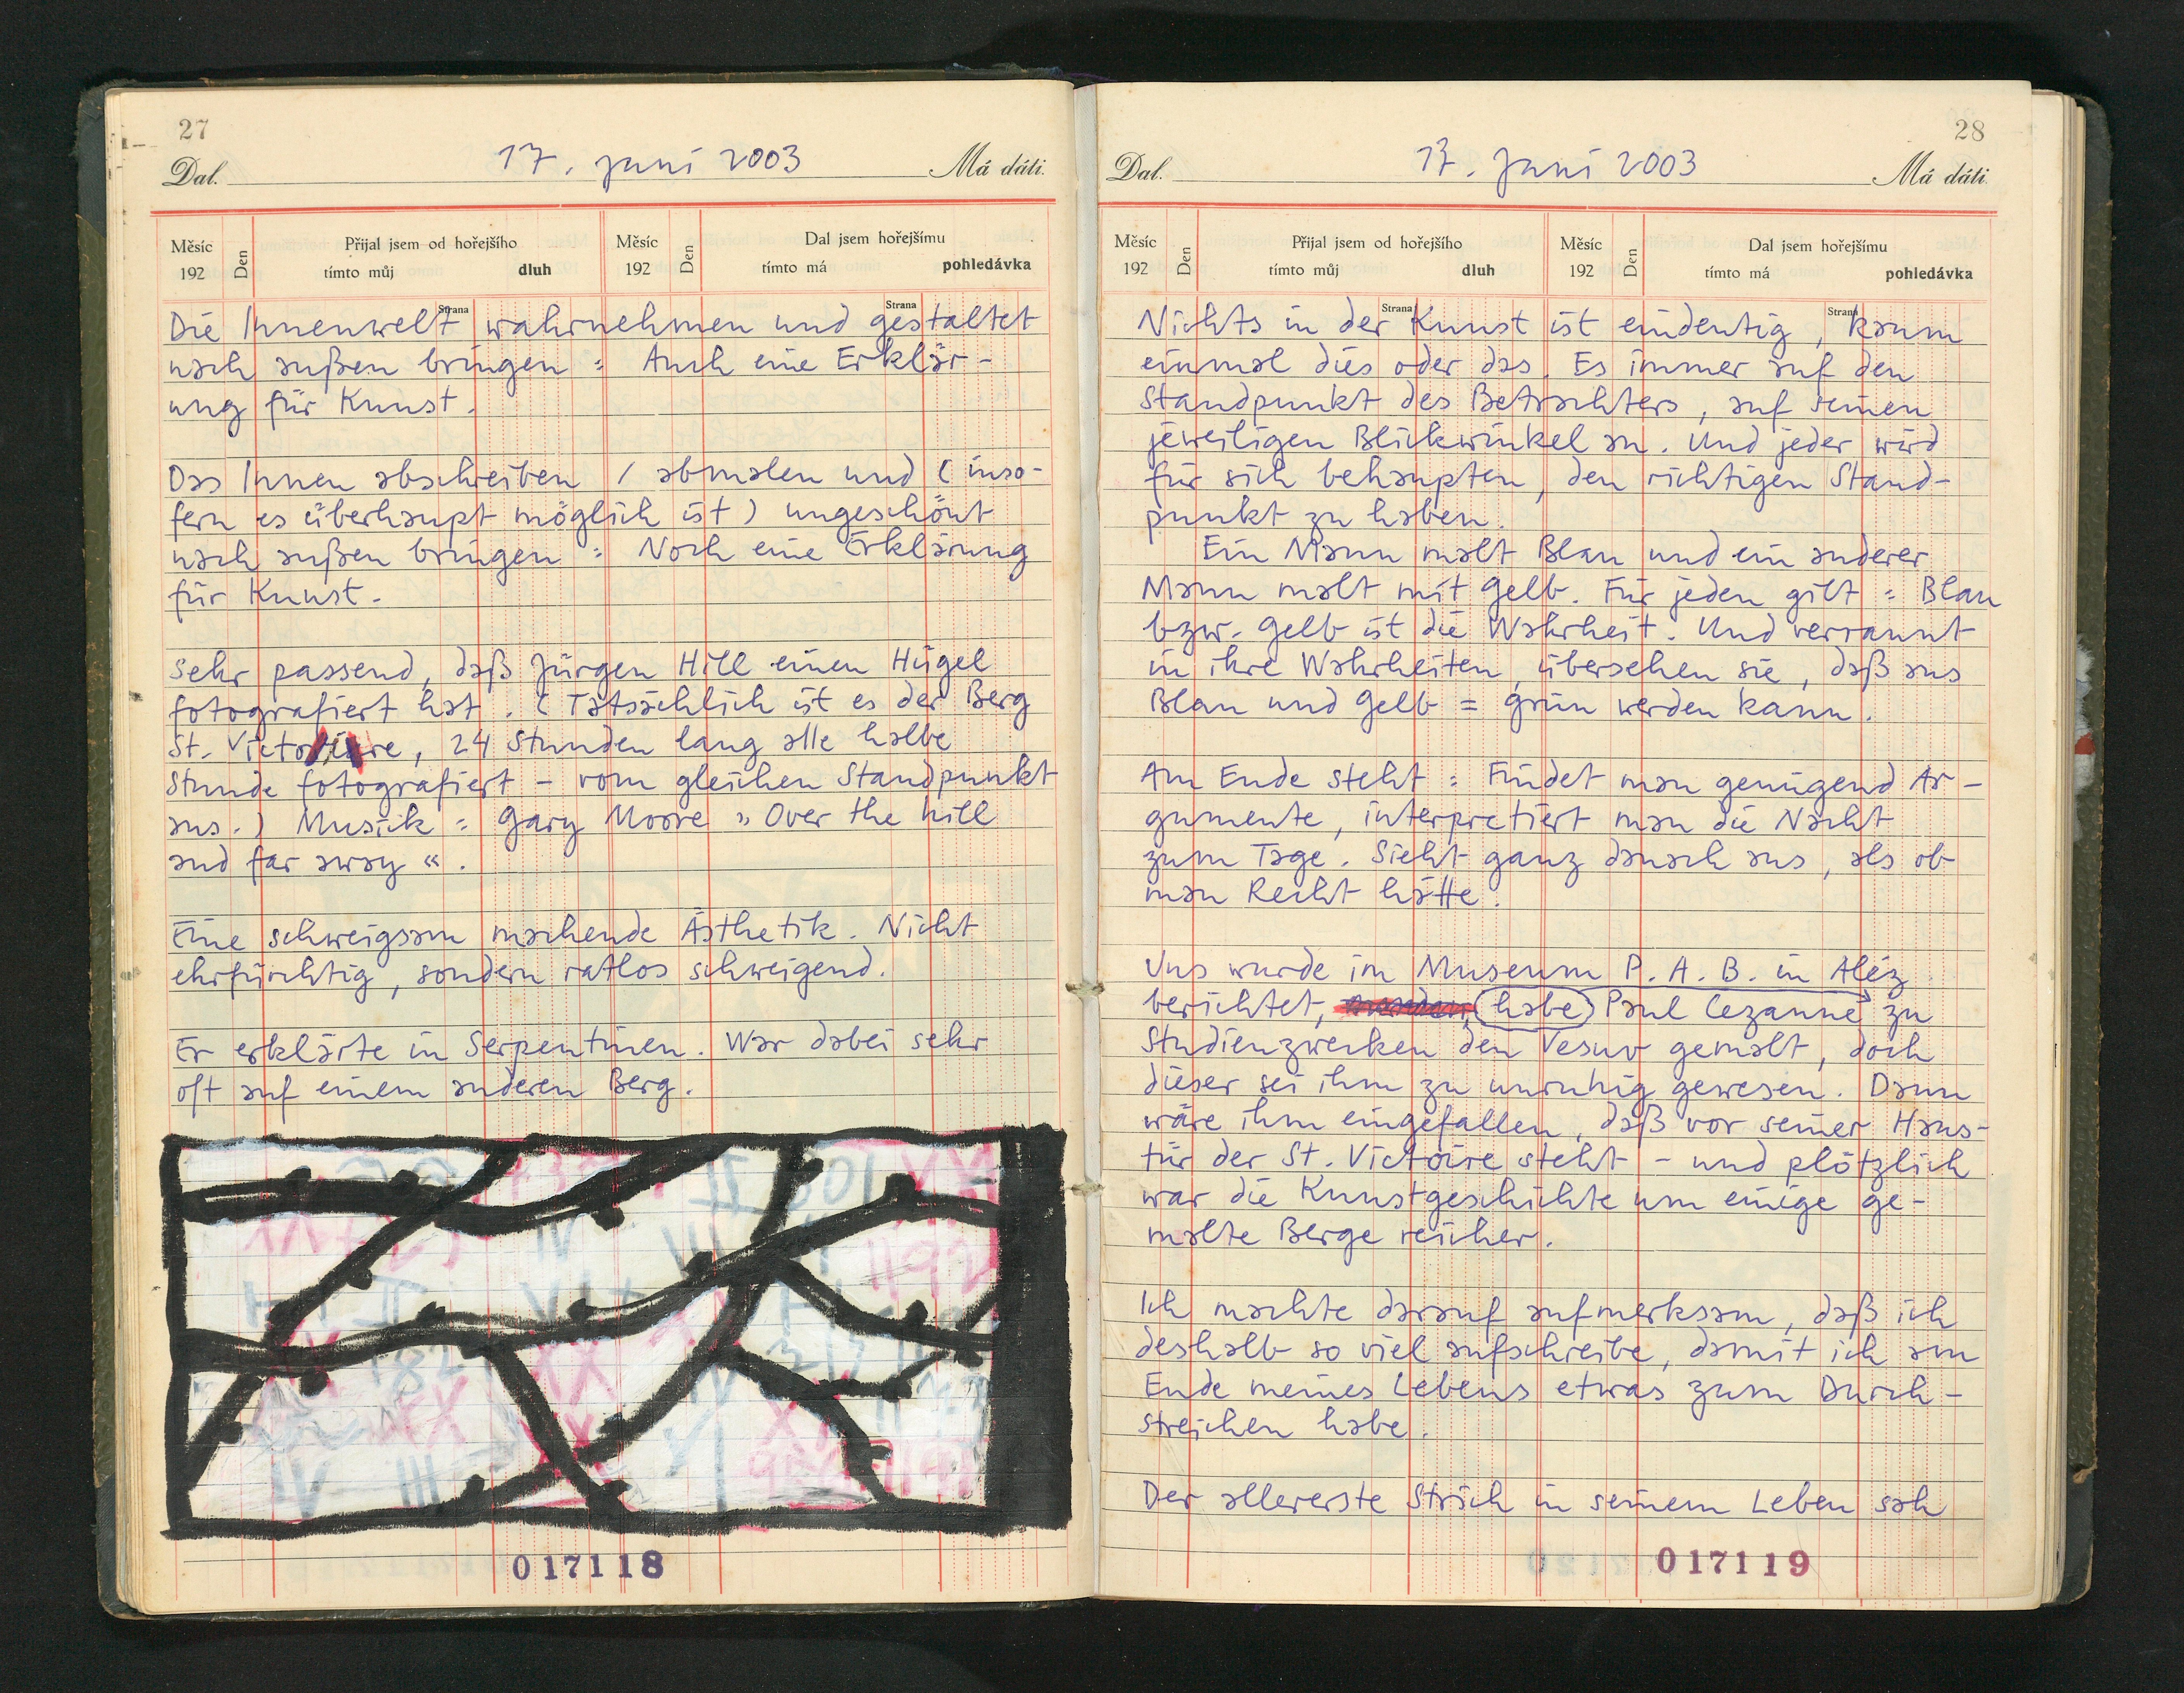 27
17. Juni 2003
Dal.
Má dáti.
Měsíc
192
Den
Přijal jsem od hořejšího
tímto můj dluh
Měsíc
192
Den
Dal jsem hořejšímu
tímto má pohledávka
Strana
Strana
Die Innenwelt wahrnehmen und gestaltet
nach außen bringen : Auch eine Erklär-
ung für Kunst.
Das Innen abschreiben / abmalen und ( inso-
fern es überhaupt möglich ist ) ungeschönt
nach außen bringen : Noch eine Erklärung
für Kunst.
Sehr passend, daß Jürgen Hill einen Hügel
fotografiert hat. ( Tatsächlich ist es der Berg
St. Victoire, 24 Stunden lang alle halbe
Stunde fotografiert – vom gleichen Standpunkt
aus. ) Musick : Gary Moore » Over the hill
and far away «.
Eine schweigsam machende Ästhetik. Nicht
ehrfürchtig, sondern ratlos schweigend.
Er erklärte in Serpentinen. War dabei sehr
oft auf einem anderen Berg.
017118
28
17. Juni 2003
Dal.
Má dáti.
Měsíc
192
Den
Přijal jsem od hořejšího
tímto můj dluh
Měsíc
192
Den
Dal jsem hořejšímu
tímto má pohledávka
Strana
Strana
Nichts in der Kunst ist eindeutig, kaum
einmal dies oder das. Es immer auf den
Standpunkt des Betrachters, auf seinen
jeweiligen Blickwinkel an. Und jeder wird
für sich behaupten, den richtigen Stand-
punkt zu haben.
Ein Mann malt Blau und ein anderer
Mann malt mit Gelb. Für jeden gilt : Blau
bzw. Gelb ist die Wahrheit. Und verrannt
in ihre Wahrheiten, übersehen sie, daß aus
Blau und Gelb = Grün werden kann.
Am Ende steht : Findet man genügend Ar-
gumente, interpretiert man die Nacht
zum Tage. Sieht ganz danach aus, als ob
man Recht hätte.
Uns wurde im Museum P. A. B. in Aléz
berichtet, habe Paul Cezanne zu
Studienzwecken den Vesuv gemalt, doch
dieser sei ihm zu unruhig gewesen. Dann
wäre ihm eingefallen, daß vor seiner Haus-
tür der St. Victoire steht – und plötzlich
war die Kunstgeschichte um einige ge-
malte Berge reicher.
Ich machte darauf aufmerksam, daß ich
deshalb so viel aufschreibe, damit ich am
Ende meines Lebens etwas zum Durch-
streichen habe.
Der allererste Strich in seinem Leben sah
017119